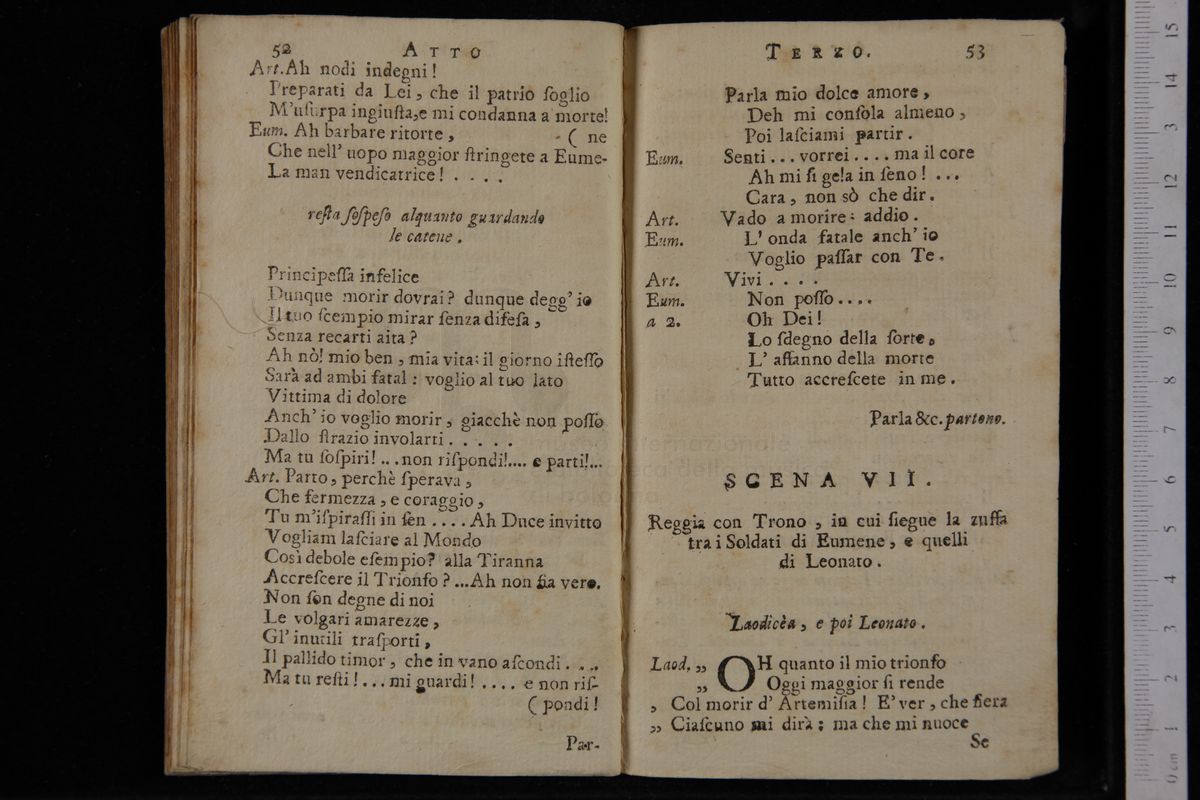 52 ATTO
Art. Ah nodi indegni!
Preparati da Lei, che il patrio ſoglio
M'uſurpa ingiuſta, e mi condanna a morte!
Eum. Ah barbare ritorte, ( ne
Che nell' uopo maggior ſtringete a Eume-
La man vendicatrice! . . . .
reſta ſoſpeſo alquanto guardando
le catene.
Principeſſa infelice
Dunque morir dovrai? dunque degg' io
Il tuo ſcempio mirar ſenza difeſa,
Senza recarti aita?
Ah nò! mio ben, mia vita: il giorno iſteſſo
Sarà ad ambi fatal: voglio al tuo lato
Vittima di dolore
Anch' io voglio morir, giacchè non poſſo
Dallo ſtrazio involarti . . . . .
Ma tu ſoſpiri! ... non riſpondi!.... e parti!...
Art. Parto, perchè ſperava,
Che fermezza, e coraggio,
Tu m'iſpiraſſi in ſen .... Ah Duce invitto
Vogliam laſciare al Mondo
Così debole eſempio? alla Tiranna
Accreſcere il Trionfo? ...Ah non ſia vero.
Non ſon degne di noi
Le volgari amarezze,
Gl' inutili traſporti,
Il pallido timor, che in vano aſcondi. ...
Ma tu reſti!... mi guardi! .... e non riſ-
( pondi!
Par-
TERZO. 53
Parla mio dolce amore,
Deh mi conſola almeno,
Poi laſciami partir.
Eum. Senti ... vorrei .... ma il core
Ah mi ſi gela in ſeno! ...
Cara, non sò che dir.
Art. Vado a morire: addio.
Eum. L' onda fatale anch' io
Voglio paſſar con Te.
Art. Vivi . . . .
Eum. Non poſſo ....
a 2. Oh Dei!
Lo ſdegno della ſorte,
L' affanno della morte
Tutto accreſcete in me.
Parla &c. partono.
SCENA VII.
Reggia con Trono, in cui ſiegue la zuffa
tra i Soldati di Eumene, e quelli
di Leonato.
Laodicèa, e poi Leonato.
Laod. ,, OH quanto il mio trionfo
,, Oggi maggior ſi rende
, Col morir d' Artemiſia! E' ver, che fiera
,, Ciaſcuno mi dirà; ma che mi nuoce
Se